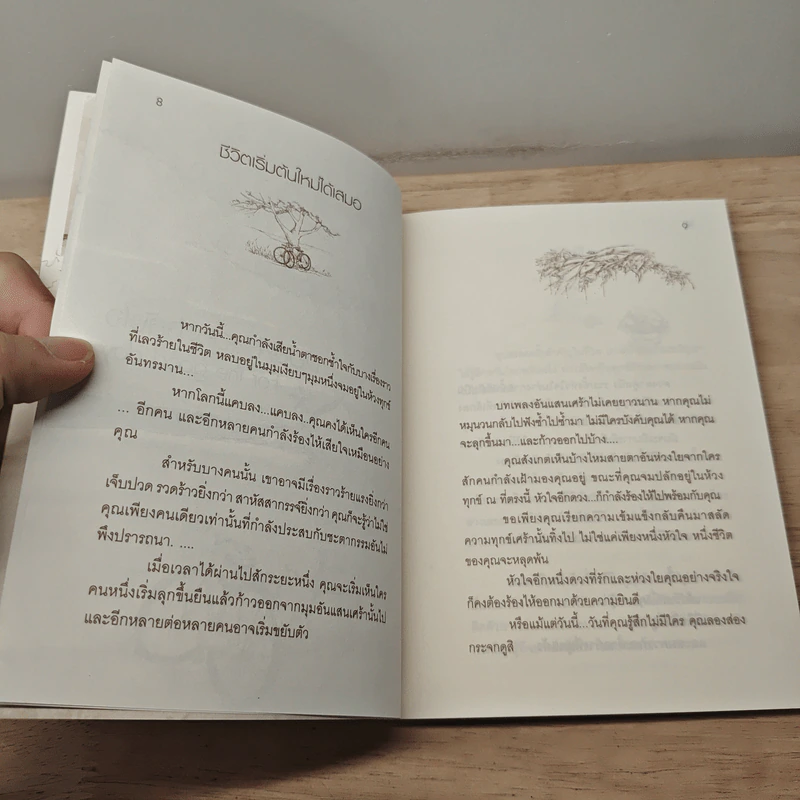 8
ชีวิตเริ่มต้นใหม่ได้เสมอ
หากวันนี้...คุณกำลังเสียน้ำตาชอกช้ำใจกับบางเรื่องราว
ที่เลวร้ายในชีวิต หลบอยู่ในมุมเงียบๆมุมหนึ่งจมอยู่ในห้วงทุกข์
อันทรมาน...
หากโลกนี้แคบลง...แคบลง..คุณคงได้เห็นใครอีกคน
... อีกคน และอีกหลายคนกำลังร้องไห้เสียใจเหมือนอย่าง
คุณ
สำหรับบางคนนั้น เขาอาจมีเรื่องราวร้ายแรงยิ่งกว่า
เจ็บปวด รวดร้าวยิ่งกว่า สาหัสสากรรจ์ยิ่งกว่า คุณก็จะรู้ว่าไม่ใช่
คุณเพียงคนเดียวเท่านั้นที่กำลังประสบกับชะตากรรมอันไม่
พึงปรารถนา. ....
เมื่อเวลาได้ผ่านไปสักระยะหนึ่ง คุณจะเริ่มเห็นใคร
คนหนึ่งเริ่มลุกขึ้นยืนแล้วก้าวออกจากมุมอันแสนเศร้านั้นไป
และอีกหลายต่อหลายคนอาจเริ่มขยับตัว
9
บทเพลงอันแสนเศร้าไม่เคยยาวนาน หากคุณไม่
หมุนวนกลับไปฟังซ้ำไปซ้ำมา ไม่มีใครบังคับคุณได้ หากคุณ
จะลุกขึ้นมา...และก้าวออกไปบ้าง....
คุณสังเกตเห็นบ้างไหมสายตาอันห่วงใยจากใคร
สักคนกำลังเฝ้ามองคุณอยู่ ขณะที่คุณจมปลักอยู่ในห้วง
ทุกข์ ณ ที่ตรงนี้ หัวใจอีกดวง...ก็กำลังร้องไห้ไปพร้อมกับคุณ
ขอเพียงคุณเรียกความเข้มแข็งกลับคืนมาสลัด
ความทุกข์เศร้านั้นทิ้งไป ไม่ใช่แค่เพียงหนึ่งหัวใจ หนึ่งชีวิต
ของคุณจะหลุดพ้น
หัวใจอีกหนึ่งดวงที่รักและห่วงใยคุณอย่างจริงใจ
ก็คงต้องร้องไห้ออกมาด้วยความยินดี
หรือแม้แต่วันนี้...วันที่คุณรู้สึกไม่มีใคร คุณลองส่อง
กระจกดูสิ